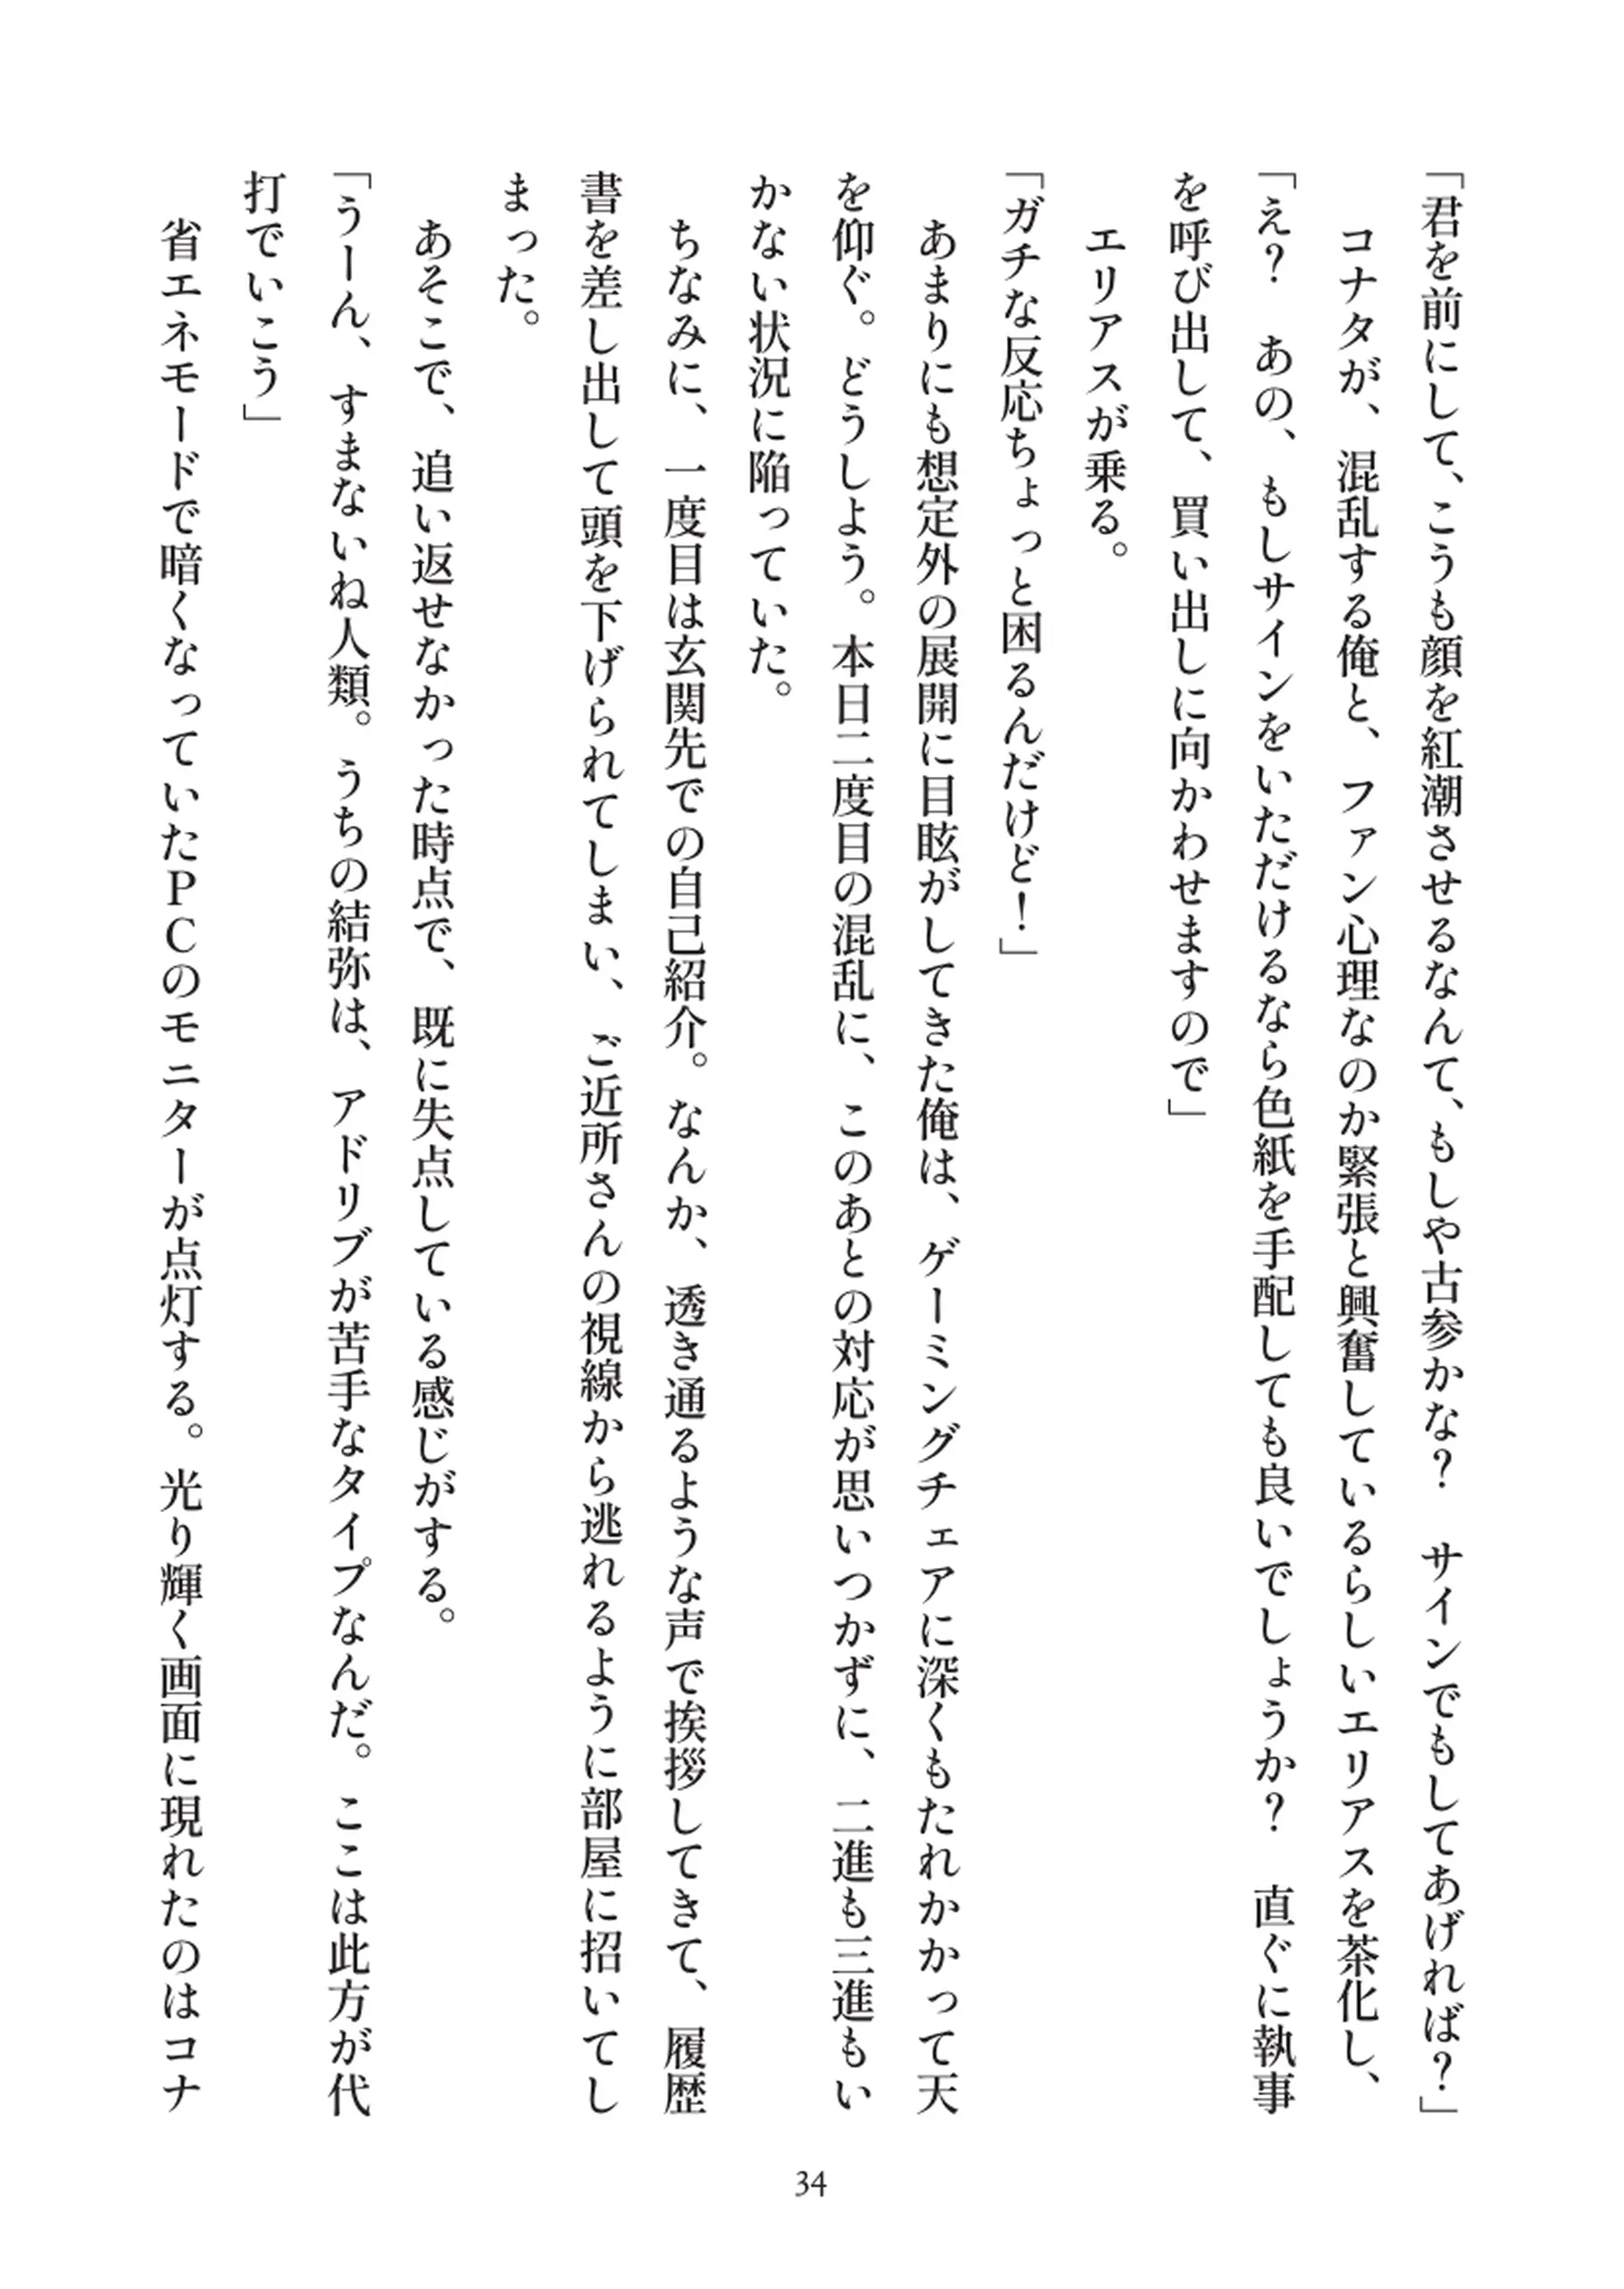 「君を前にして、こうも顔を紅潮させるなんて、もしや古参かな？　サインでもしてあげれば？」
　コナタが、混乱する俺と、ファン心理なのか緊張と興奮しているらしいエリアスを茶化し、
「え？　あの、もしサインをいただけるなら色紙を手配しても良いでしょうか？　直ぐに執事
を呼び出して、買い出しに向かわせますので」
　エリアスが乗る。
「ガチな反応ちょっと困るんだけど！」
　あまりにも想定外の展開に目眩がしてきた俺は、ゲーミングチェアに深くもたれかかって天
を仰ぐ。どうしよう。本日二度目の混乱に、このあとの対応が思いつかずに、二進も三進もい
かない状況に陥っていた。
　ちなみに、一度目は玄関先での自己紹介。なんか、透き通るような声で挨拶してきて、履歴
書を差し出して頭を下げられてしまい、ご近所さんの視線から逃れるように部屋に招いてし
まった。
　あそこで、追い返せなかった時点で、既に失点している感じがする。
「うーん、すまないね人類。うちの結弥は、アドリブが苦手なタイプなんだ。ここは此方が代
打でいこう」
　省エネモードで暗くなっていたＰＣのモニターが点灯する。光り輝く画面に現れたのはコナ
34